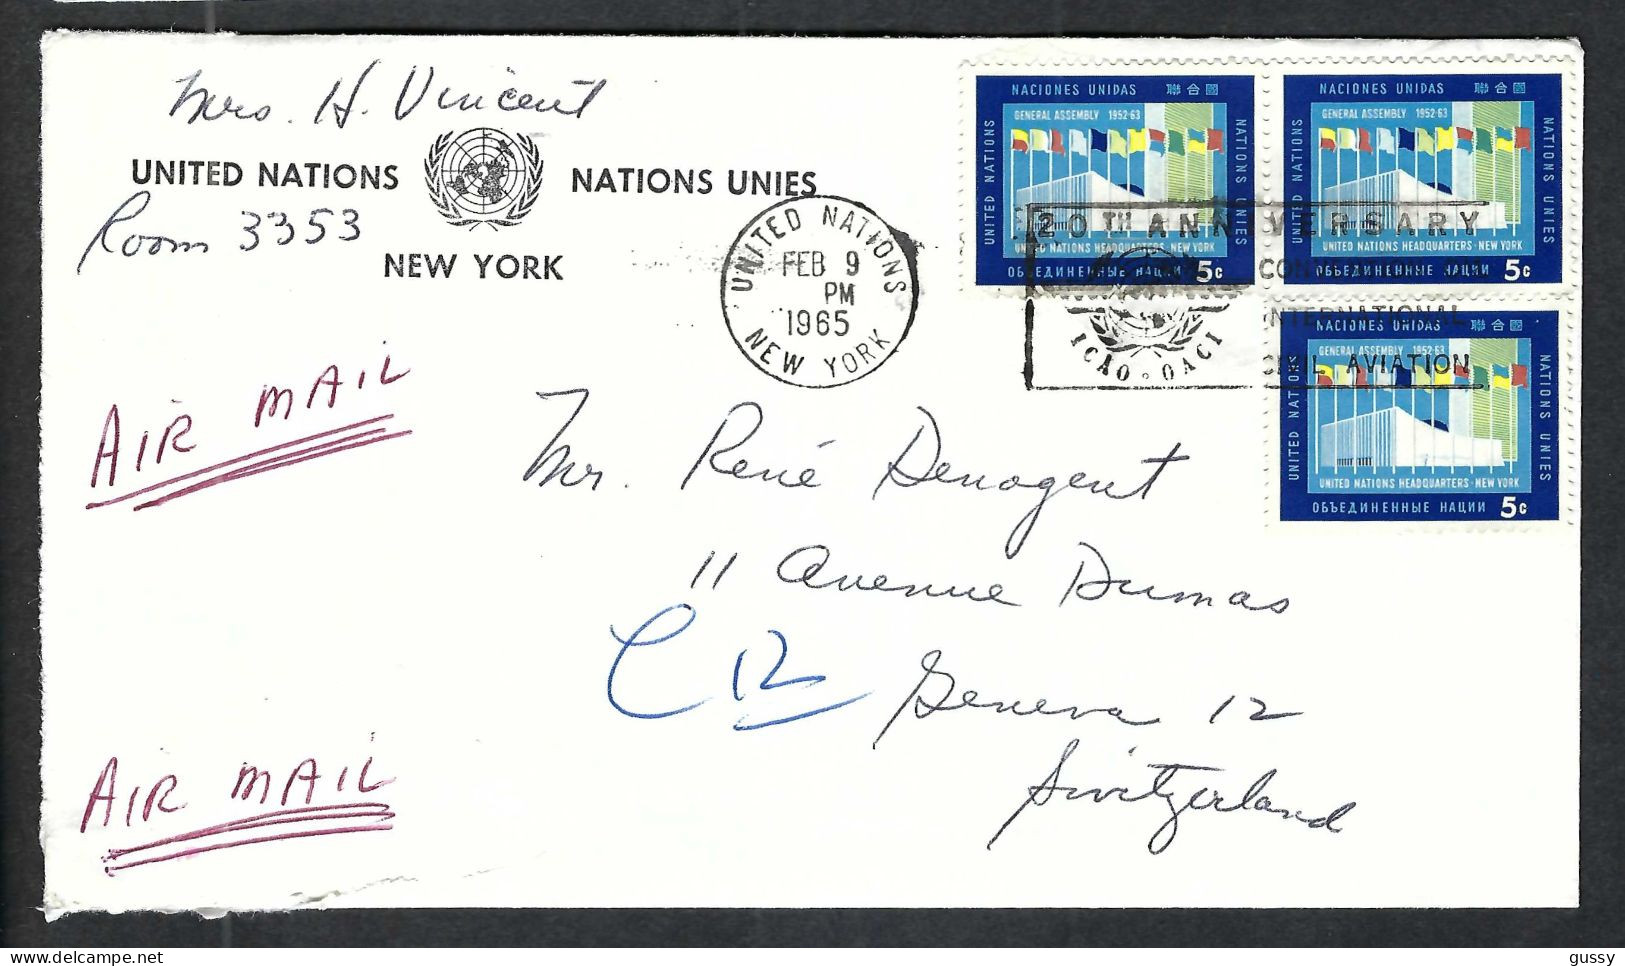 Mrs. H. Vincent
UNITED NATIONS NATIONS UNIES
Room 3353
NEW YORK
UNITED NATIONS
FEB 9
PM
1965
NEW YORK
20TH ANNIVERSARY
CONVENTION ON
INTERNATIONAL
CIVIL AVIATION
ICAO · OACI
NACIONES UNIDAS 聯合國
GENERAL ASSEMBLY 1952-63
UNITED NATIONS
NATIONS UNIES
UNITED NATIONS HEADQUARTERS · NEW YORK
ОБЪЕДИНЕННЫЕ НАЦИИ 5c
NACIONES UNIDAS 聯合國
GENERAL ASSEMBLY 1952-63
UNITED NATIONS
NATIONS UNIES
UNITED NATIONS HEADQUARTERS · NEW YORK
ОБЪЕДИНЕННЫЕ НАЦИИ 5c
NACIONES UNIDAS 聯合國
GENERAL ASSEMBLY 1952-63
UNITED NATIONS
NATIONS UNIES
UNITED NATIONS HEADQUARTERS · NEW YORK
ОБЪЕДИНЕННЫЕ НАЦИИ 5c
AIR MAIL
Mr. René Denogent
11 Avenue Dumas
C 12
Geneva 12
Switzerland
AIR MAIL
delcampe.net
gussy